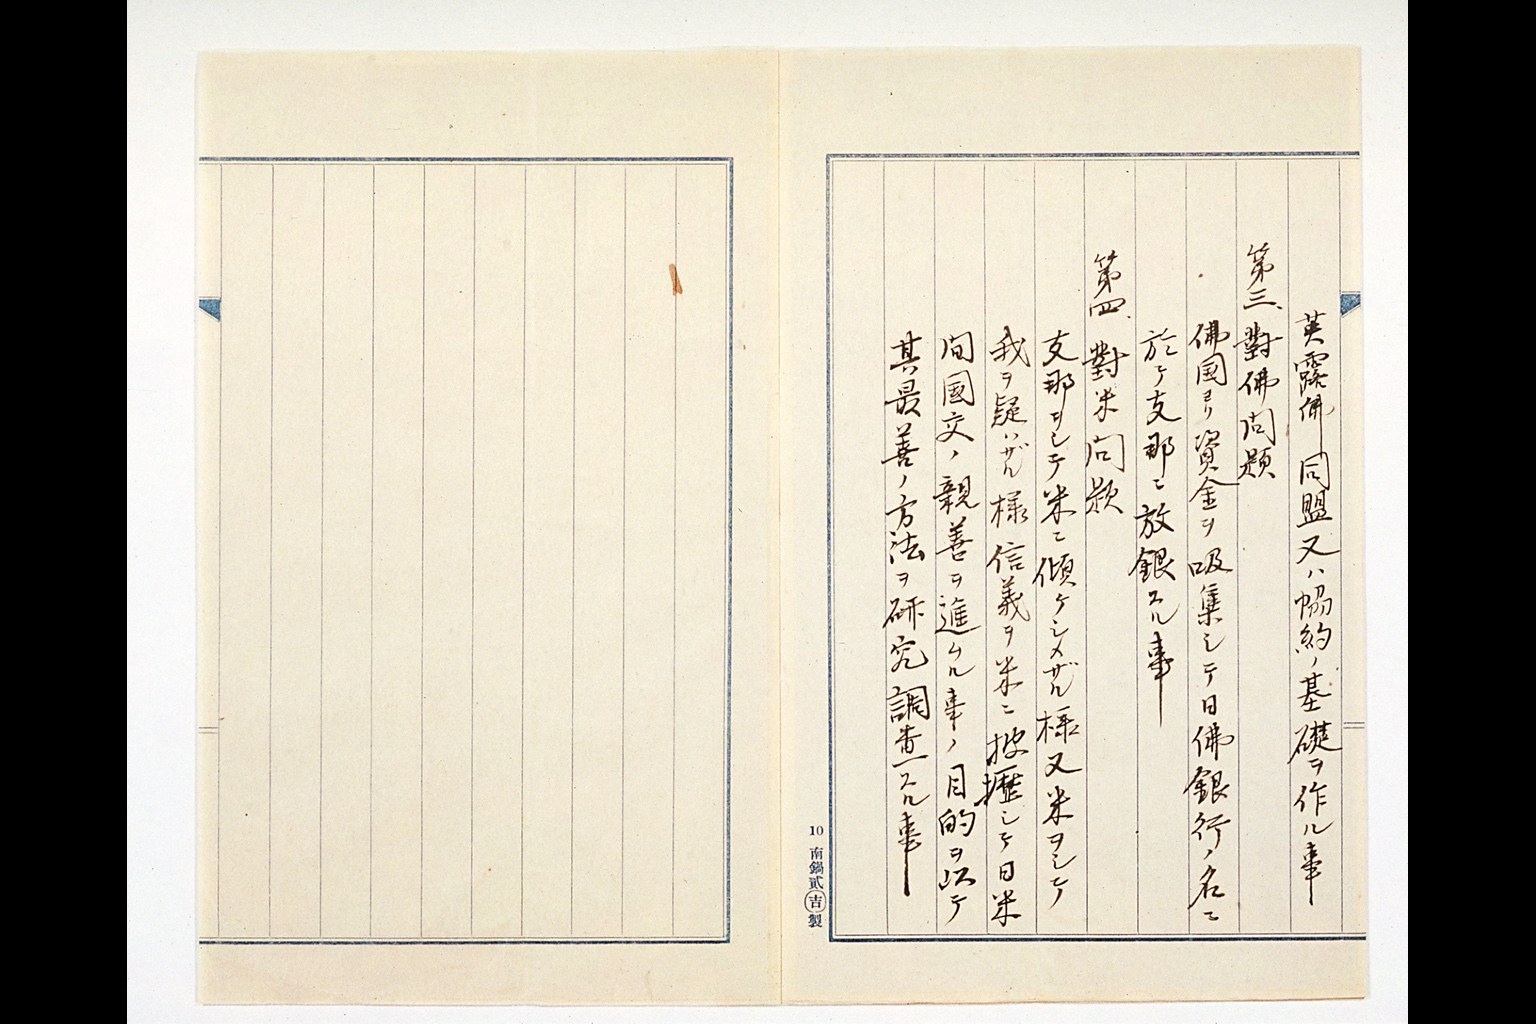 英露佛ノ同盟又ハ協約ノ基礎ヲ作ル事
第三、對佛問題
佛国ヨリ資金ヲ吸集シテ日佛銀行ノ名ニ
於テ支那ニ放銀スル事
第四、對米問題
支那ヲシテ米ニ傾ケシメザル様又米ヲシテ
我ヲ疑ハザル様信義ヲ米ニ披攊シテ日米
間國交ノ親善ヲ進ムル事ノ目的ヲ以テ
其最善ノ方法ヲ研究調査スル事
10 南鍋貳吉製